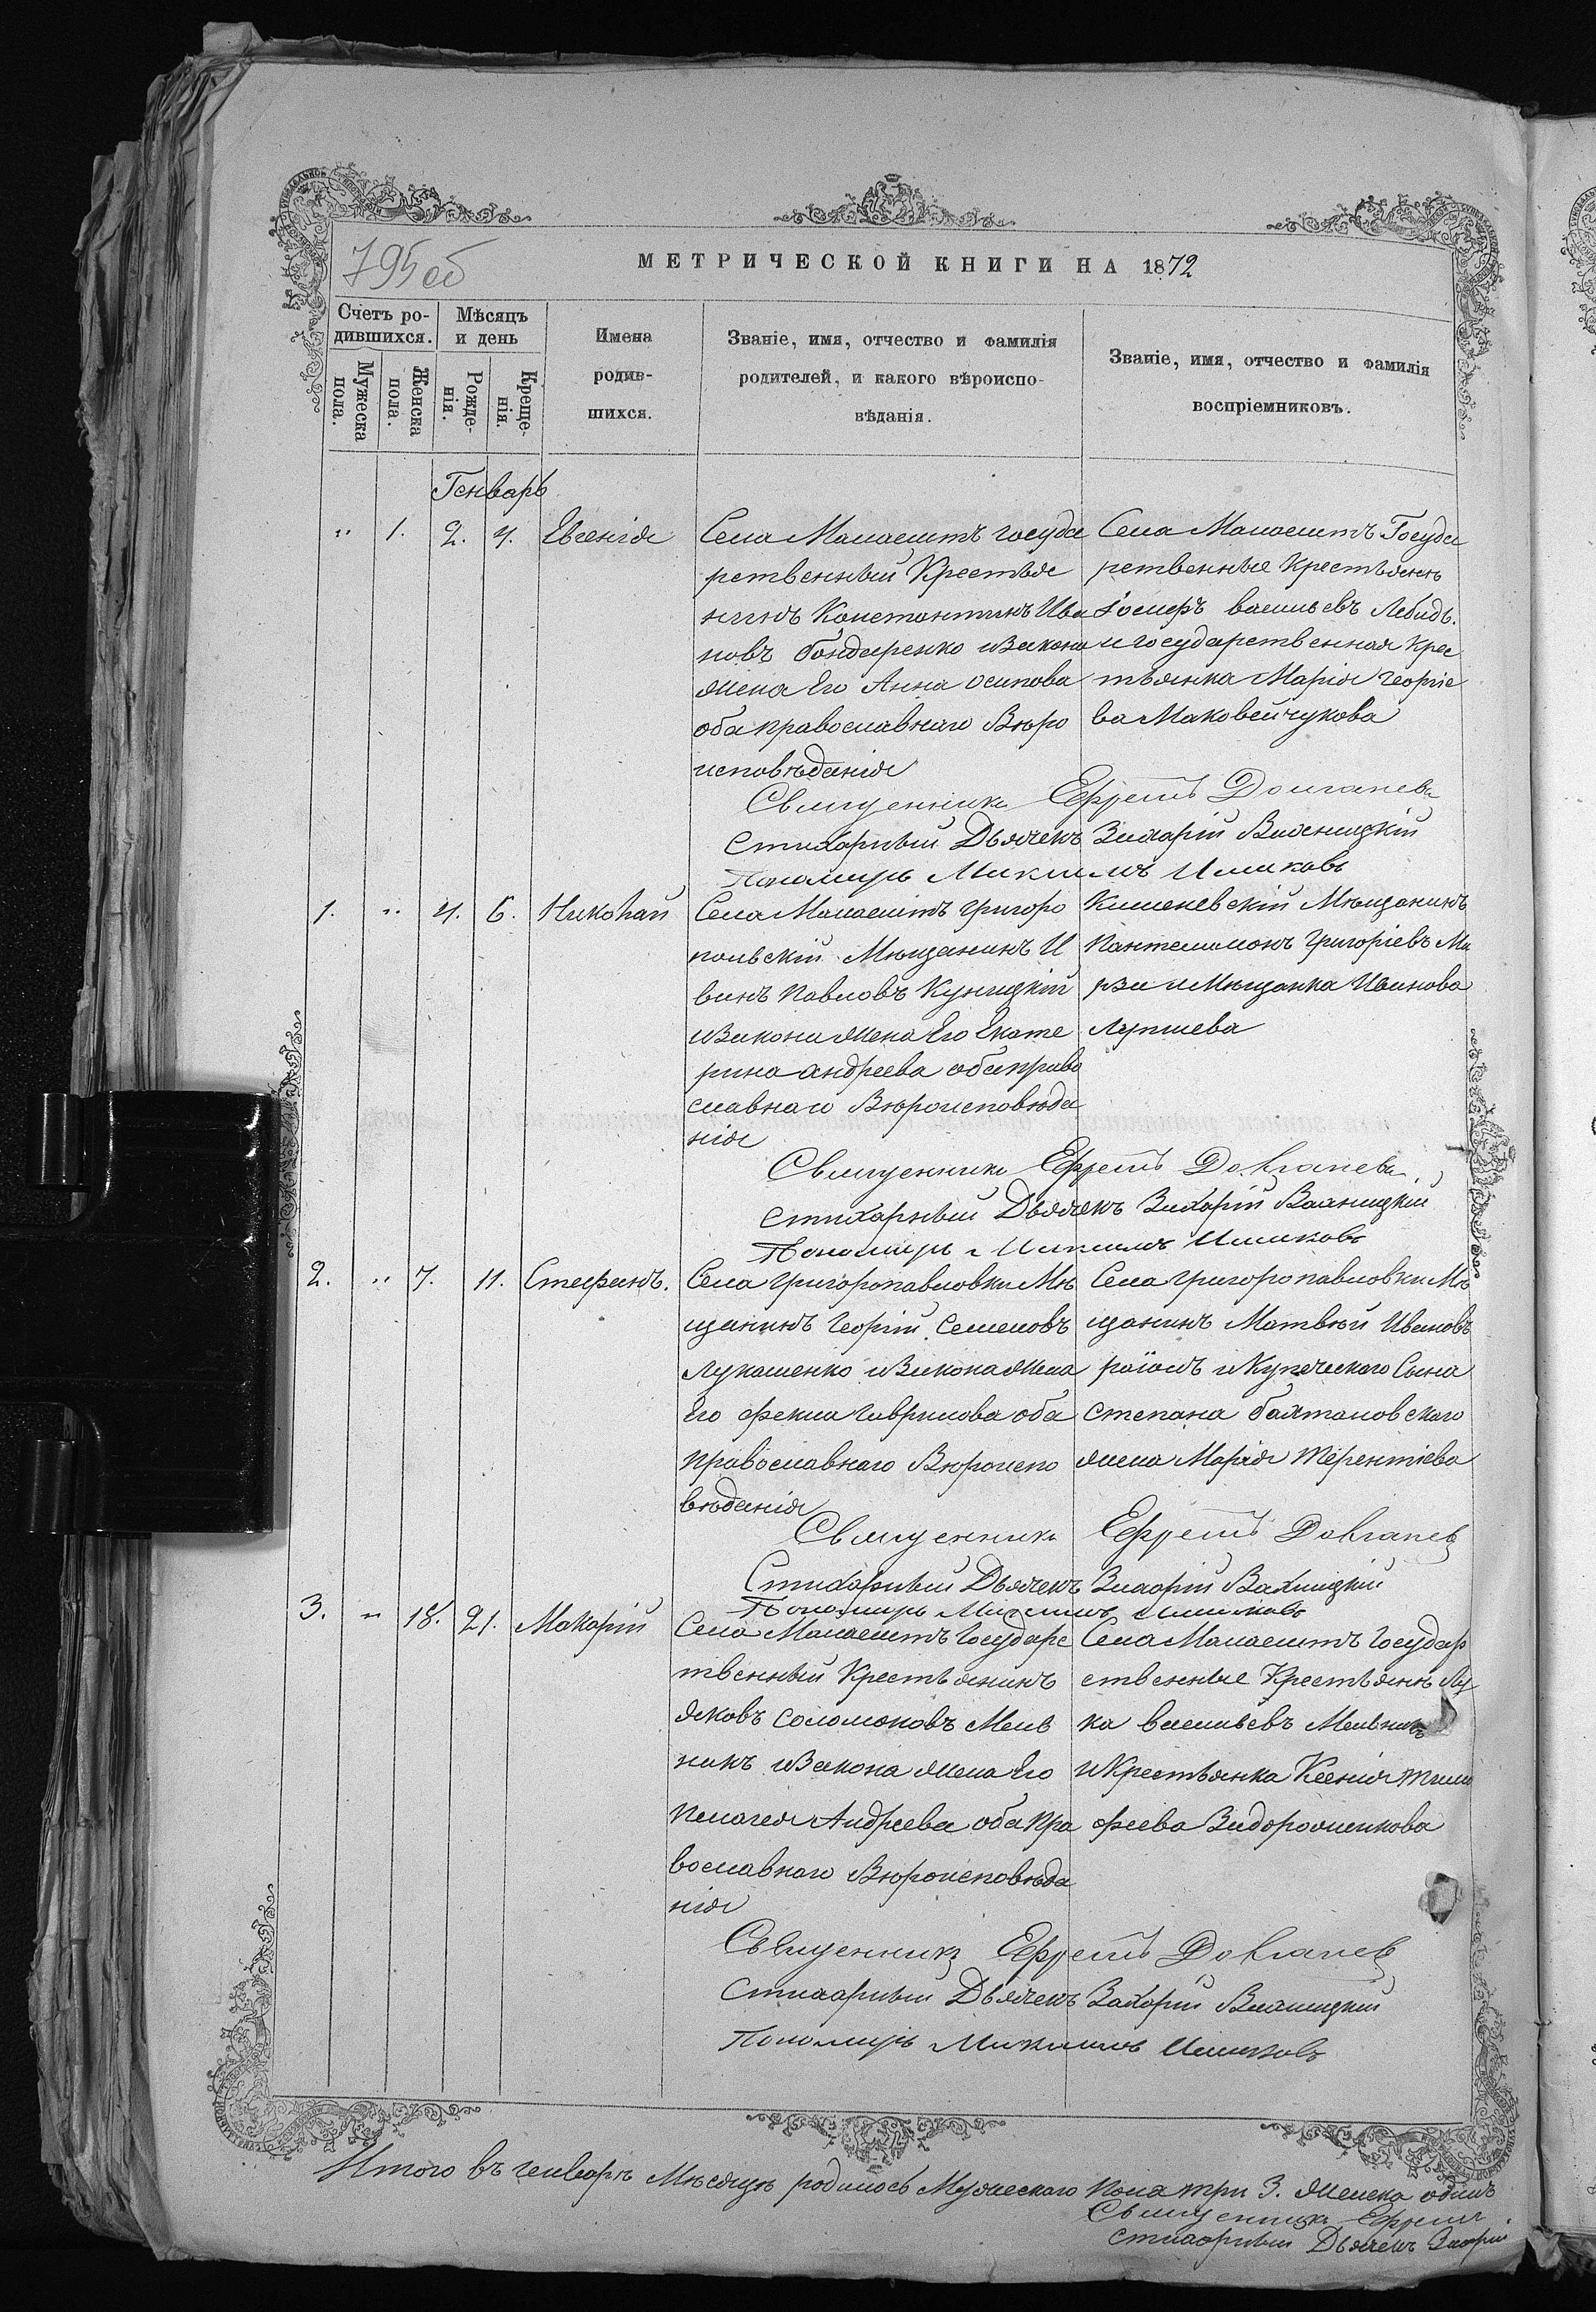 795 об
МЕТРИЧЕСКОЙ КНИГИ НА 1872
Счетъ ро-
дившихся.
Мужеска
пола.
Женска
пола.
Мѣсяцъ
и день
Рожде-
нія.
Креще-
нія.
Имена
родив-
шихся.
Званіе, имя, отчество и фамилія
родителей, и какого вѣроиспо-
вѣданія.
Званіе, имя, отчество и фамилія
воспріемниковъ.
Генварь
" 1. 2. 4. Евгенія
Села Малаештъ госуда
рственный Крестья
нинъ Константинъ Ива
новъ бондаренко изакона
жена Его Анна осипова
оба православнаго Вѣро
исповѣданія
Села Малаештъ Госуда
рственные Крестьянъ
Іосифъ васильевъ Лебидь.
и государственная Крес
тьянка Марія георгіе
ва Маковейчукова
Священникъ Ефремъ Долганевъ
Стихарный Дьячекъ Захарій
Пономарь
1. " 4. 6. Николай
Села Малаештъ григоро
польскій Мѣщанинъ И
ванъ Павловъ Куницкій
изакона жена Его Екате
рина андреева оба право
славнаго Вѣроисповѣда
нія
Кишеневскій Мѣщанинъ
Пантелимонъ григоріевъ Ма
рзи и Мѣщанка Иванова
Лупшева
Священникъ Ефремъ Долганевъ
Стихарный Дьячекъ Захарій
Пономарь
2. " 7. 11. Стефанъ.
Села григоропавловки Мѣ
щанинъ георгій Семеновъ
Лукашенко изакона жена
Его фекла гаврилова оба
православнаго Вѣроиспо
вѣданія
Села григоропавловки Мѣ
щанинъ Матвѣй Ивановъ
и Купеческаго Сына
Степана бахтановскаго
жена Марія Терентіева
Священникъ Ефремъ Долганевъ
Стихарный Дьячекъ Захарій
Пономарь
3. " 18. 21. Макарій
Села Малаештъ государс
твенный Крестьянинъ
яковъ соломоновъ Мель
никъ изакона жена Его
пелагея Андреева оба пра
вославнаго Вѣроисповѣда
нія
Села Малаештъ государ
ственные Крестьянъ Лу
ка васильевъ Мельникъ
и Крестьянка Ксенія тимо
феева Задорожнюкова
Священникъ Ефремъ Долганевъ
Стихарный Дьячекъ Захарій
Пономарь
Итого въ генварѣ Мѣсяцѣ родилось Мужескаго Пола три 3. Женска одинъ
Священникъ Ефремъ
Стихарный Дьячекъ Захарій